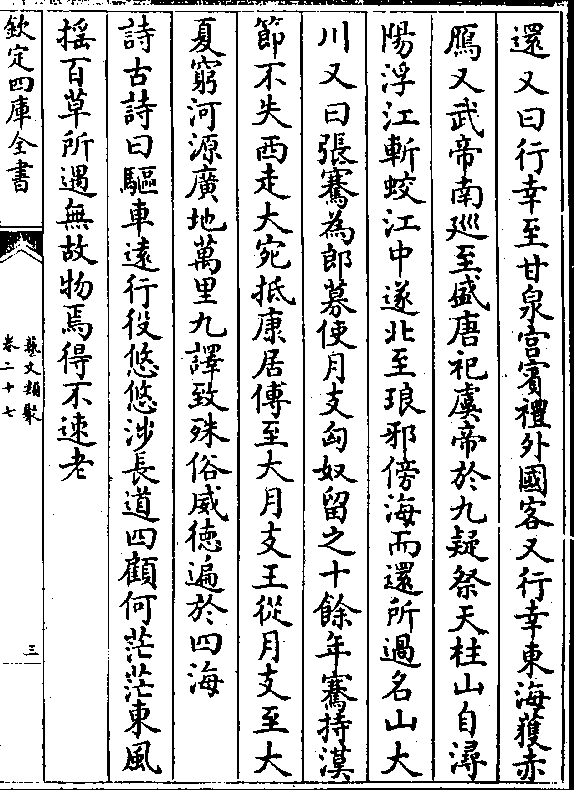 還又曰行幸至甘泉宫賓禮外國客又行幸東海獲赤
鴈又武帝南廵至盛唐祀虞帝於九疑祭天柱山自潯
陽浮江斬蛟江中遂北至琅邪傍海而還所過名山大
川又曰張騫為郎募使月支匈奴留之十餘年騫持漢
節不失西走大宛抵康居傳至大月支王從月支至大
夏窮河源廣地萬里九譯致殊俗威徳遍於四海
詩古詩曰驅車遠行役悠悠涉長道四顧何茫茫東風
揺百草所遇無故物焉得不速老
欽定四庫全書
藝文類聚
卷二十七
三